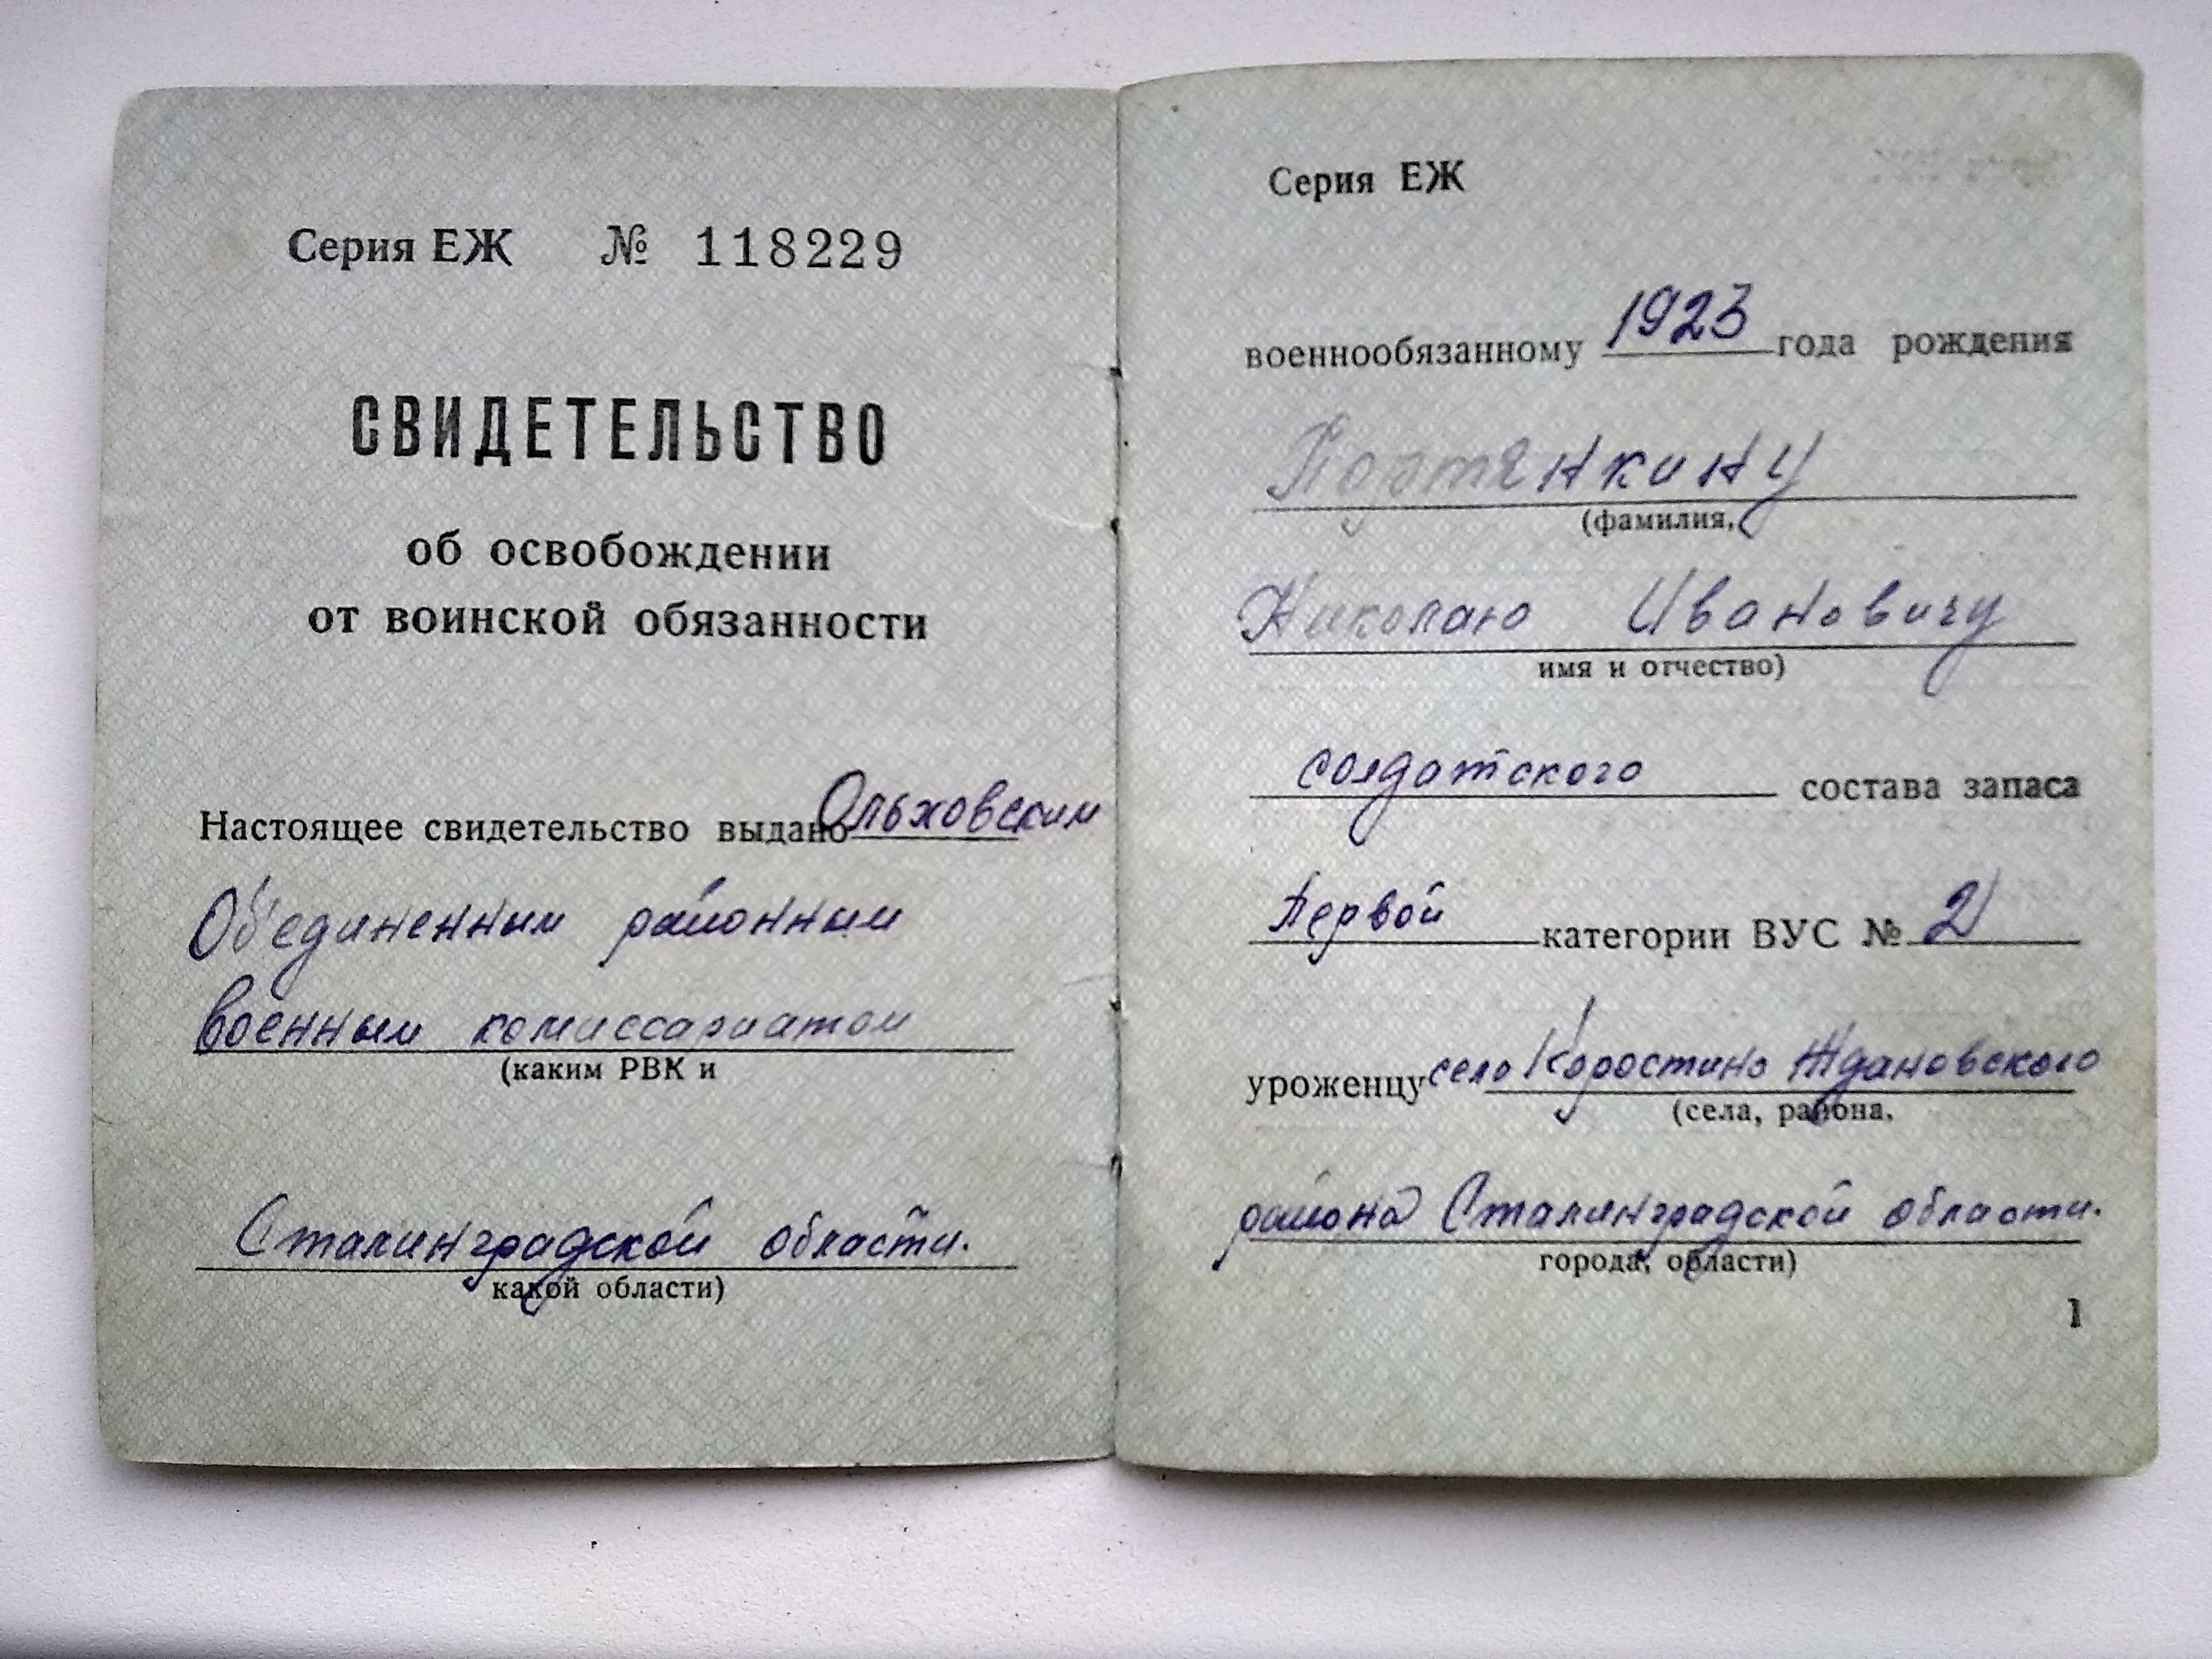 Серия ЕЖ № 118229
СВИДЕТЕЛЬСТВО
об освобождении
от воинской обязанности
Настоящее свидетельство выдано Ольховским
Объединенным районным
военным комиссариатом
(каким РВК и
Сталинградской области.
какой области)
Серия ЕЖ
военнообязанному 1923 года рождения
Портянкину
(фамилия,
Николаю Ивановичу
имя и отчество)
солдатского состава запаса
первой категории ВУС № 2
уроженцу село Коростино Ждановского
(села, района,
района Сталинградской области.
города, области)
1